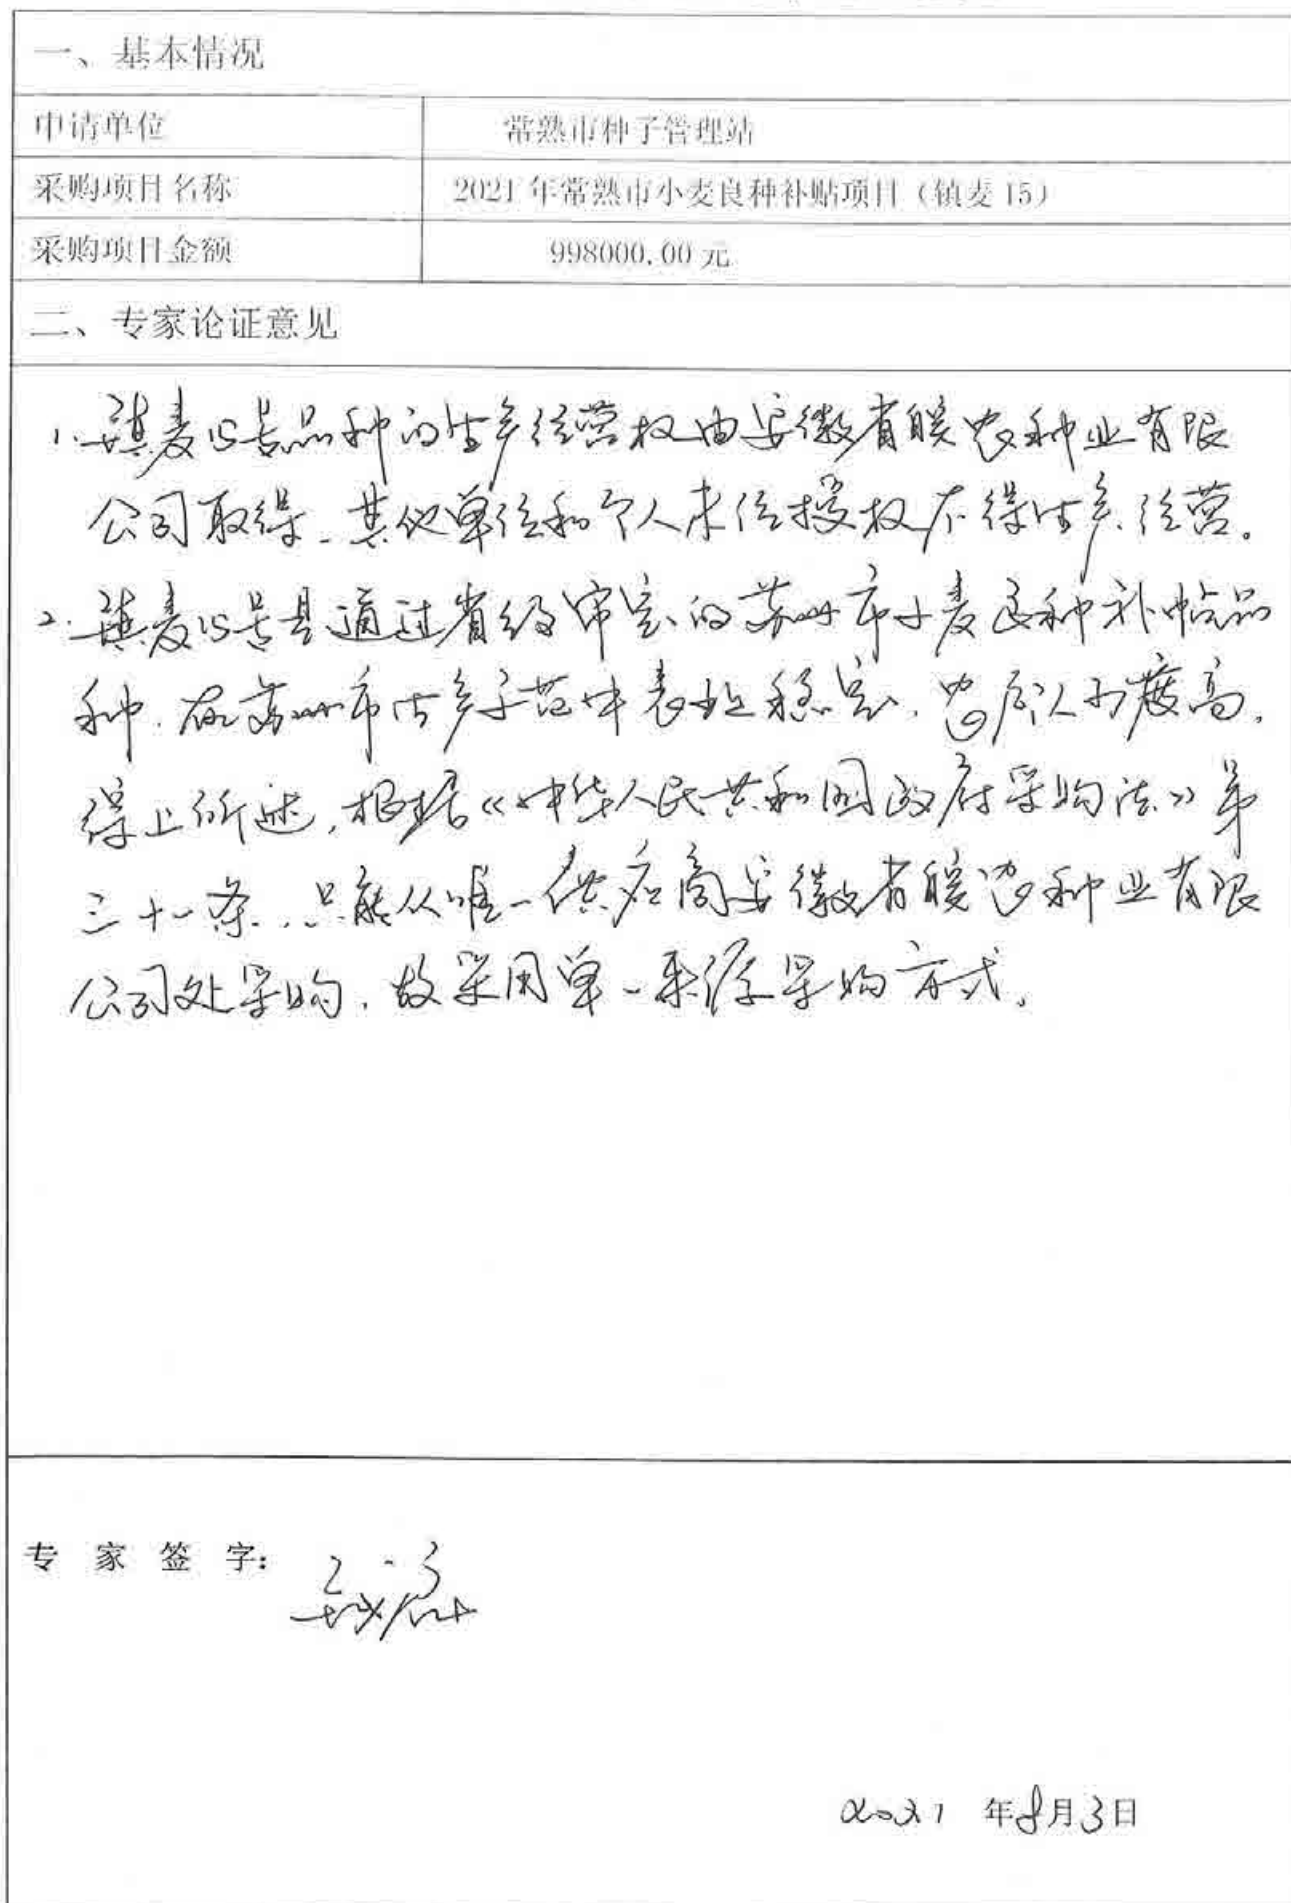 一、基本情况
申请单位 常熟市种子管理站
采购项目名称 2021年常熟市小麦良种补贴项目（镇麦15）
采购项目金额 998000.00元
二、专家论证意见
1. 镇麦15号品种的生产经营权由安徽省皖农种业有限
公司取得、其他单位和个人未经授权不得生产、经营。
2. 镇麦15号是通过省级审定的苏州市小麦良种补贴品
种，在苏州市生产示范中表现稳定，农户认可度高。
综上所述，根据《中华人民共和国政府采购法》第
三十一条，只能从唯一供应商安徽省皖农种业有限
公司处采购，故采用单一来源采购方式。
专 家 签 字：
2021 年8月3日